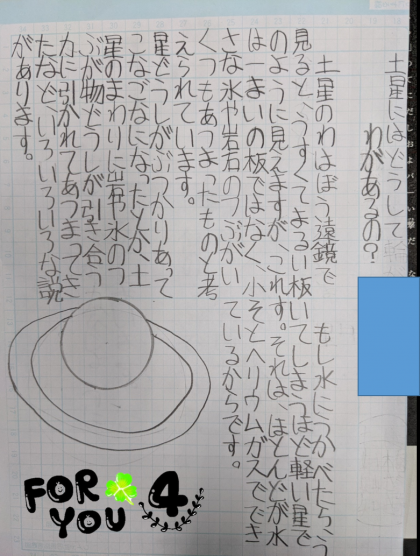 土星にはどうして
わがあるの?
土星のわはぼう遠鏡で
見ると、うすくてまるい板
のように見えますが、これ
は一まいの板ではなく、小
さな氷や岩石のつぶがい
くつもあつまったものと考
えられています。
星どうしがぶつかりあって
こなごなになったとか、土
星のまわりに岩や氷のつ
ぶが物どうしが引き合う
力に引かれてあつまってき
たなど、いろいろいろな説
があります。
もし水にうかべたら、う
いてしまうほど軽い星で
す。それは、ほとんどが水
そとヘリウムガスででき
ているからです。
FOR
YOU
4